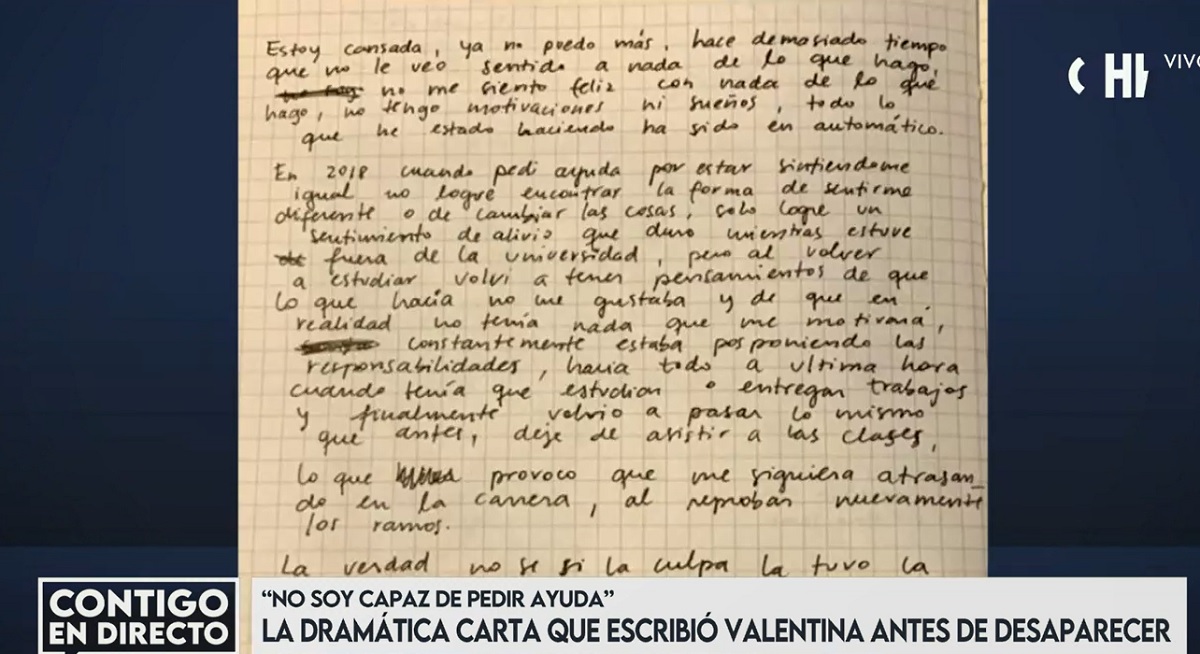 Estoy cansada, ya no puedo más, hace demasiado tiempo
que no le veo sentido a nada de lo que hago,
no me siento feliz con nada de lo que
hago, no tengo motivaciones ni sueños, todo lo
que he estado haciendo ha sido en automático.
En 2018 cuando pedi ayuda por estar sintiendome
igual no logre encontrar la forma de sentirme
diferente o de cambiar las cosas, solo logre un
sentimiento de alivio que duro mientras estuve
fuera de la universidad, pero al volver
a estudiar volvi a tener pensamientos de que
lo que hacía no me gustaba y de que en
realidad no tenía nada que me motivara,
constantemente estaba posponiendo las
responsabilidades, hacia todo a ultima hora
cuando tenía que estudiar o entregar trabajos
y finalmente volvio a pasar lo mismo
que antes, deje de asistir a las clases,
lo que provoco que me siguiera atrasan_
do en la carrera, al reprobar nuevamente
los ramos.
La verdad no se si la culpa la tuvo la
CHV
VIVO
CONTIGO
EN DIRECTO
"NO SOY CAPAZ DE PEDIR AYUDA"
LA DRAMÁTICA CARTA QUE ESCRIBIÓ VALENTINA ANTES DE DESAPARECER